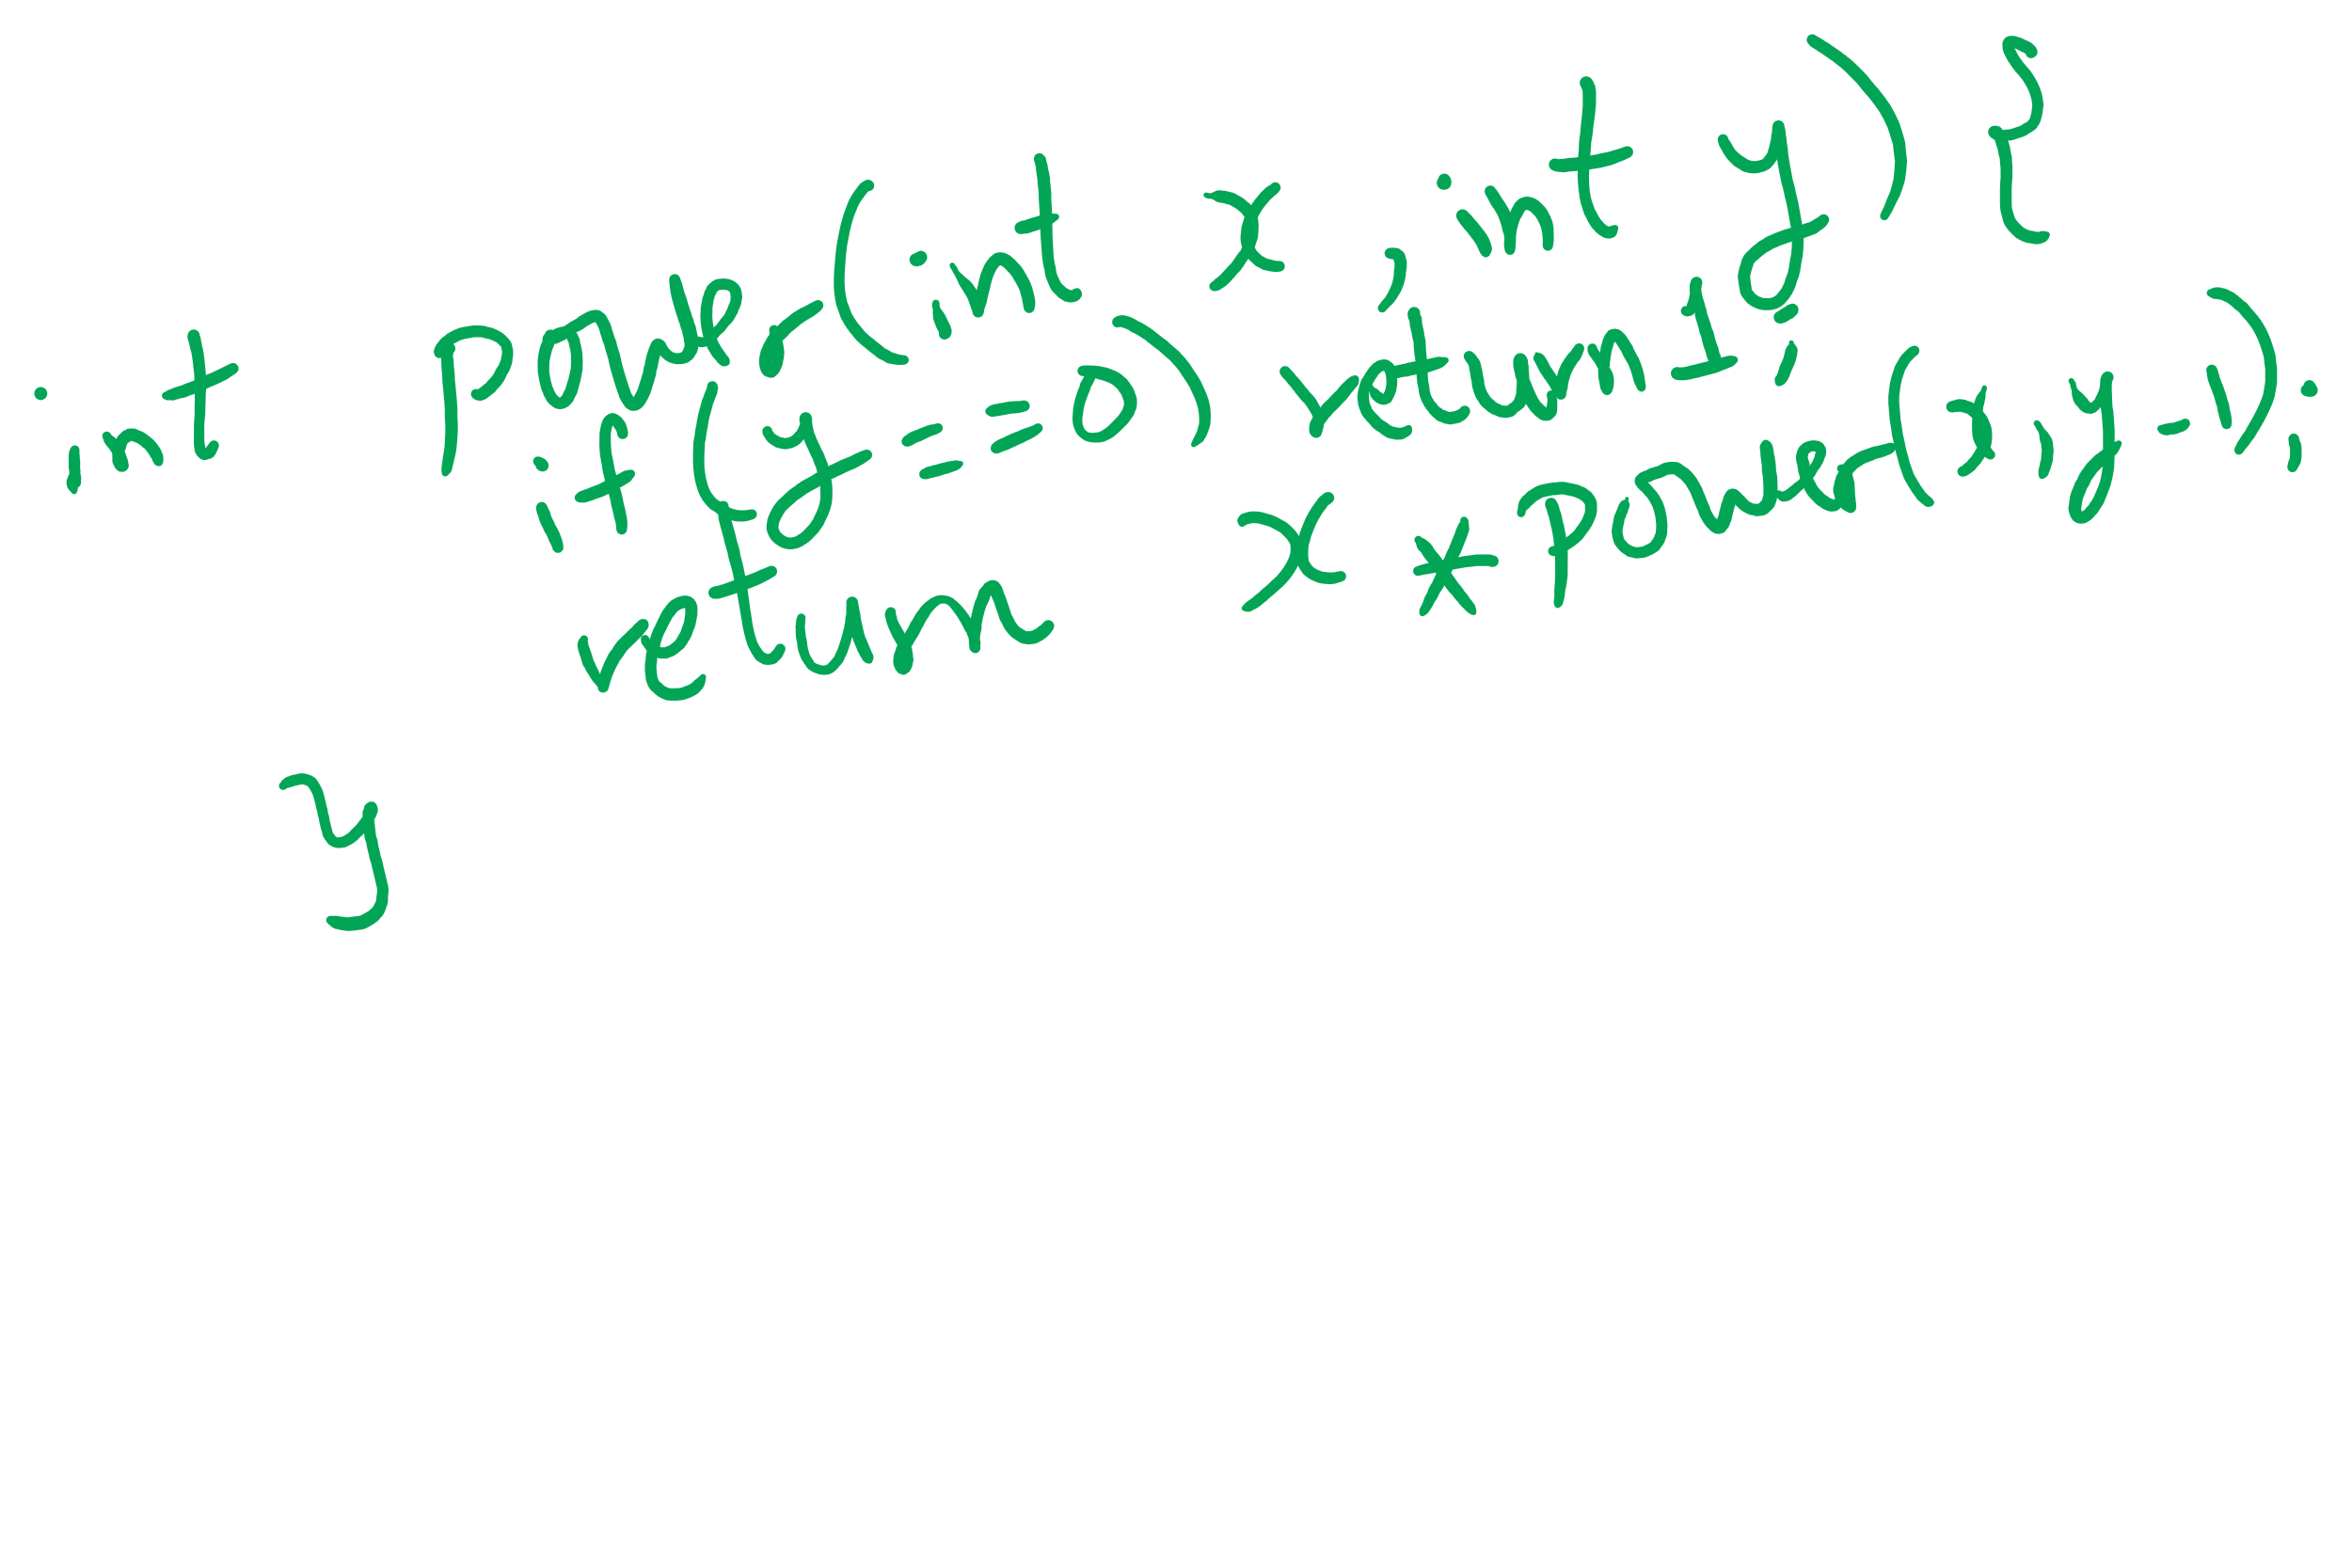 int power(int x, int y) {
if (y == 0) return 1;
return x * power(x, y-1);
}